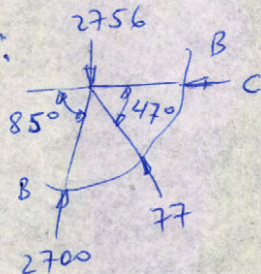 2756
B
C
85°
47°
B
77
2700